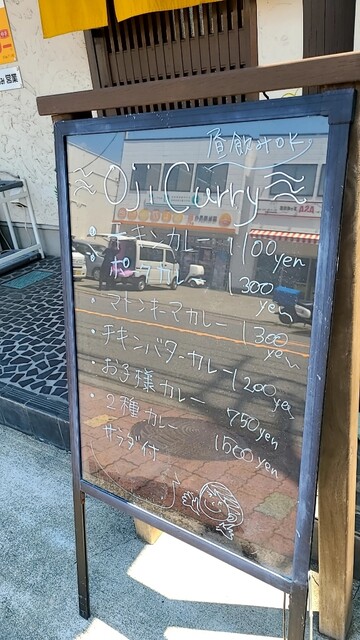 昼飲みOK
Oji Curry
・チキンカレー 1100yen
1300yen
・マトンキーマカレー 1300yen
・チキンバターカレー 1200yen
・お子様カレー 750yen
・2種カレー 1500yen
サラダ付